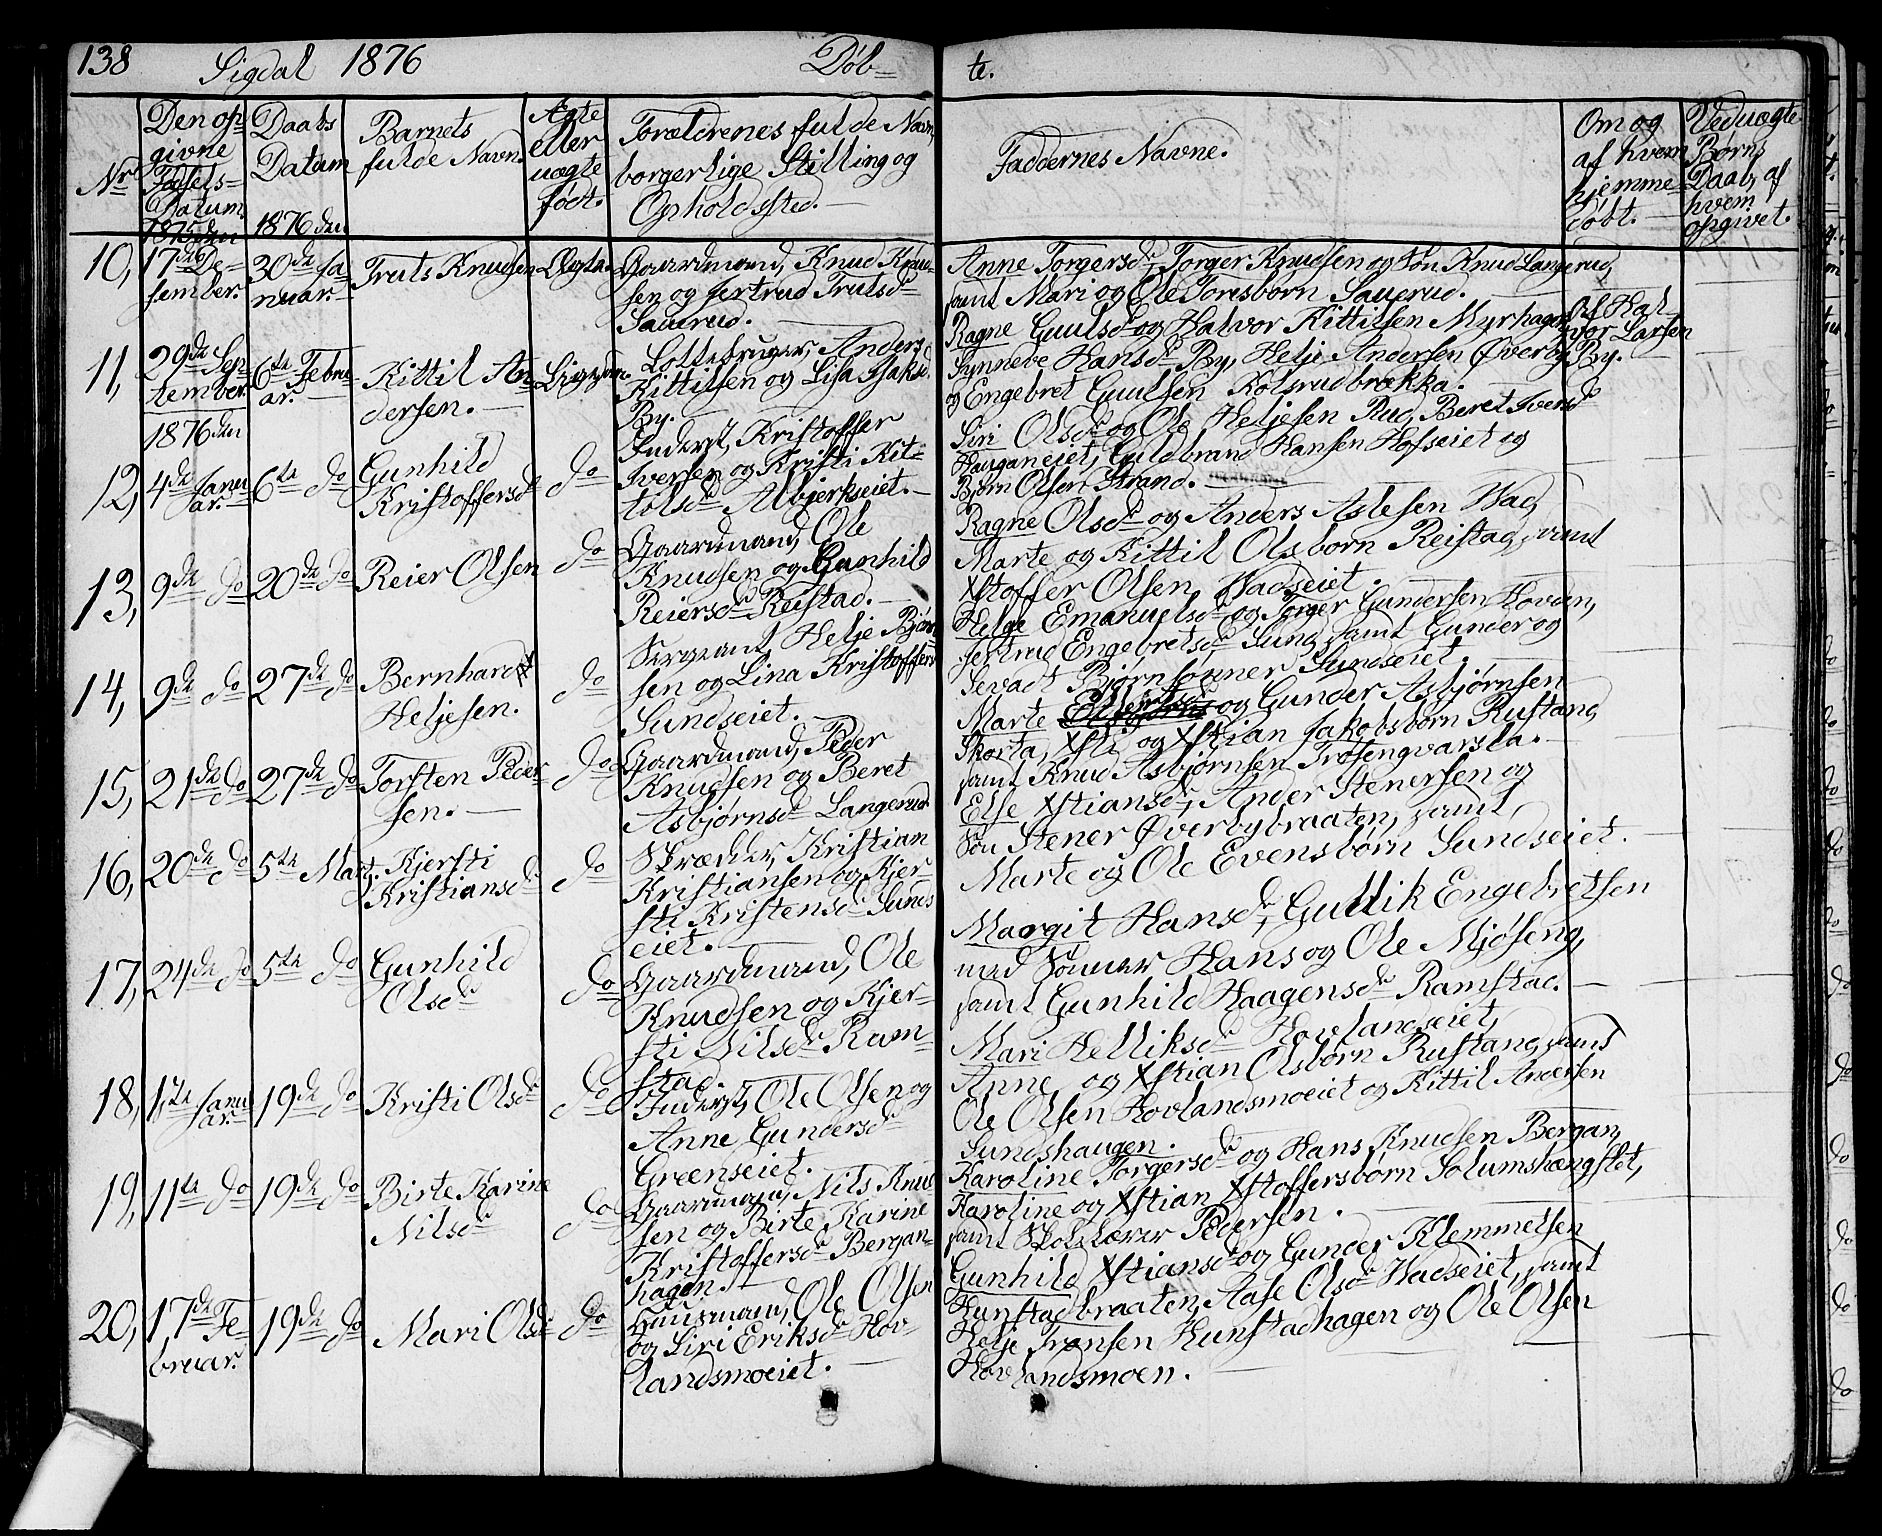 138 Sigdal 1876 Døb= te.
Nr
Den op=
givne
Fødsels=
Datum.
1875 den
Daabs
Datum
1876 den
Barnets
fulde Navn.
Ægte
eller
uægte
født.
Forældrenes fulde Navn,
borgerlige Stilling og
Opholdssted.
Faddernes Navne.
Om og
af hvem
hjemme=
døbt.
Ved uægte
Børns
Daab, af
hvem
opgivet.
10, 17de De=
sember. 30de Ja
nuar. Truls Knudsen Ægte
Gaardmand, Knud Knud=
sen og Gertrud Trulsdr
Saurud.
Anne Torgersdr, Torger Knudsen og Søn Knud Langerud,
samt Mari og Ole Toresbørn Saurud.
11, 29de Sep
tember. 6te Febru
ar. Kittil An
dersen.
Løttebruger, Anders
Kittilsen og Lisa Isaksd.
By.
Ragne Guulsdr og Halvor Kittilsen Myrhagen,
Synneve Hansdr By, Helje Andersen Øverby
og Engebret Guulsen Kolsrudbrækka.
Af Hal
vor Larsen
By.
1876 den
12, 4de Janu
ar. 6te do Gunhild
Kristoffersdr do
Inderst, Kristoffer
Iversen og Kristi Kit=
tolsdr Albjerkseiet.
Siri Olsdr og Ole Heljesen Rud, Beret Iversdr
Hauganeiet, Guldbrand Hansen Hofseiet og
Bjørn Olsen Strand.
13, 9de do 20de do Reier Olsen do
Gaardmand, Ole
Knudsen og Gunhild
Reiersdr Reistad.
Ragne Olsdr og Anders Aslesen Wad,
Marte og Kittil Olsbørn Reistad, samt
Xstoffer Olsen Wadseiet.
14, 9de do 27de do Bernhardt
Heljesen. do
Sergeant, Helje Bjørn
sen og Lina Kristoffers
Sundseiet.
Helge Emanuelsdr og Torger Gundersen Hovün,
Gertrud Engebretsdr Sund, samt Gunder og
Sevadt Bjørnsønner Sundseiet.
15, 21de do 27de do Torsten Peder
sen. do
Gaardmand, Peder
Knudsen og Beret
Asbjørnsdr Langerud
Marte og Gunder Asbjørnsen
Skorta, Xsti og Xstian Jakobsbørn Rustand
samt Knud Asbjørnsen Frøsengvarsla.
16, 20de do 5te Mart. Kjersti
Kristiansdr do
Skrædder, Kristian
Kristiansen og Kjer=
sti Kristensdr Sunds
eiet.
Else Xstiansdr, Ander Stenersen og
Søn Stener Øverbybraaten, samt
Marte og Ole Evensbørn Sundseiet.
17, 24de do 5te do Gunhild
Olsdr do
Gaardmand, Ole
Knudsen og Kjer=
sti Nilsdr Ram=
stad.
Margit Hansdr, Gullik Engebretsen
med Sønner Hans og Ole Mjøseng,
samt Gunhild Haagensdr Ramstad.
18, 1ste Janu
ar. 19de do Kristi Olsdr do
Inderst, Ole Olsen og
Anne Gundersdr
Greenseiet.
Mari Helliksdr Hovlandseiet,
Anne og Xstian Olsbørn Rustand, samt
Ole Olsen Hovlandsmoeiet og Kittil Andersen
Sundshaugen.
19, 11te do 19de do Birte Karine
Nilsdr do
Gaardmand, Nils Knud
sen og Birte Karine
Kristoffersdr Bergan=
hagen.
Karoline Torgersdr og Hans Knudsen Bergan,
Karoline og Xstian Xstoffersbørn Solumshængslet,
samt Skolelærer Pedersen.
20, 17de Fe=
bruar. 19de do Mari Olsdr do
Husmand, Ole Olsen
og Siri Eriksdr Hov=
landsmoeiet.
Gunhild Xstiansdr og Gunder Klemmetsen
Hunstadbraaten, Aase Olsdr Wadseiet, samt
Helje Fransen Hunstadhagen og Ole Olsen
Hovlandsmoen.